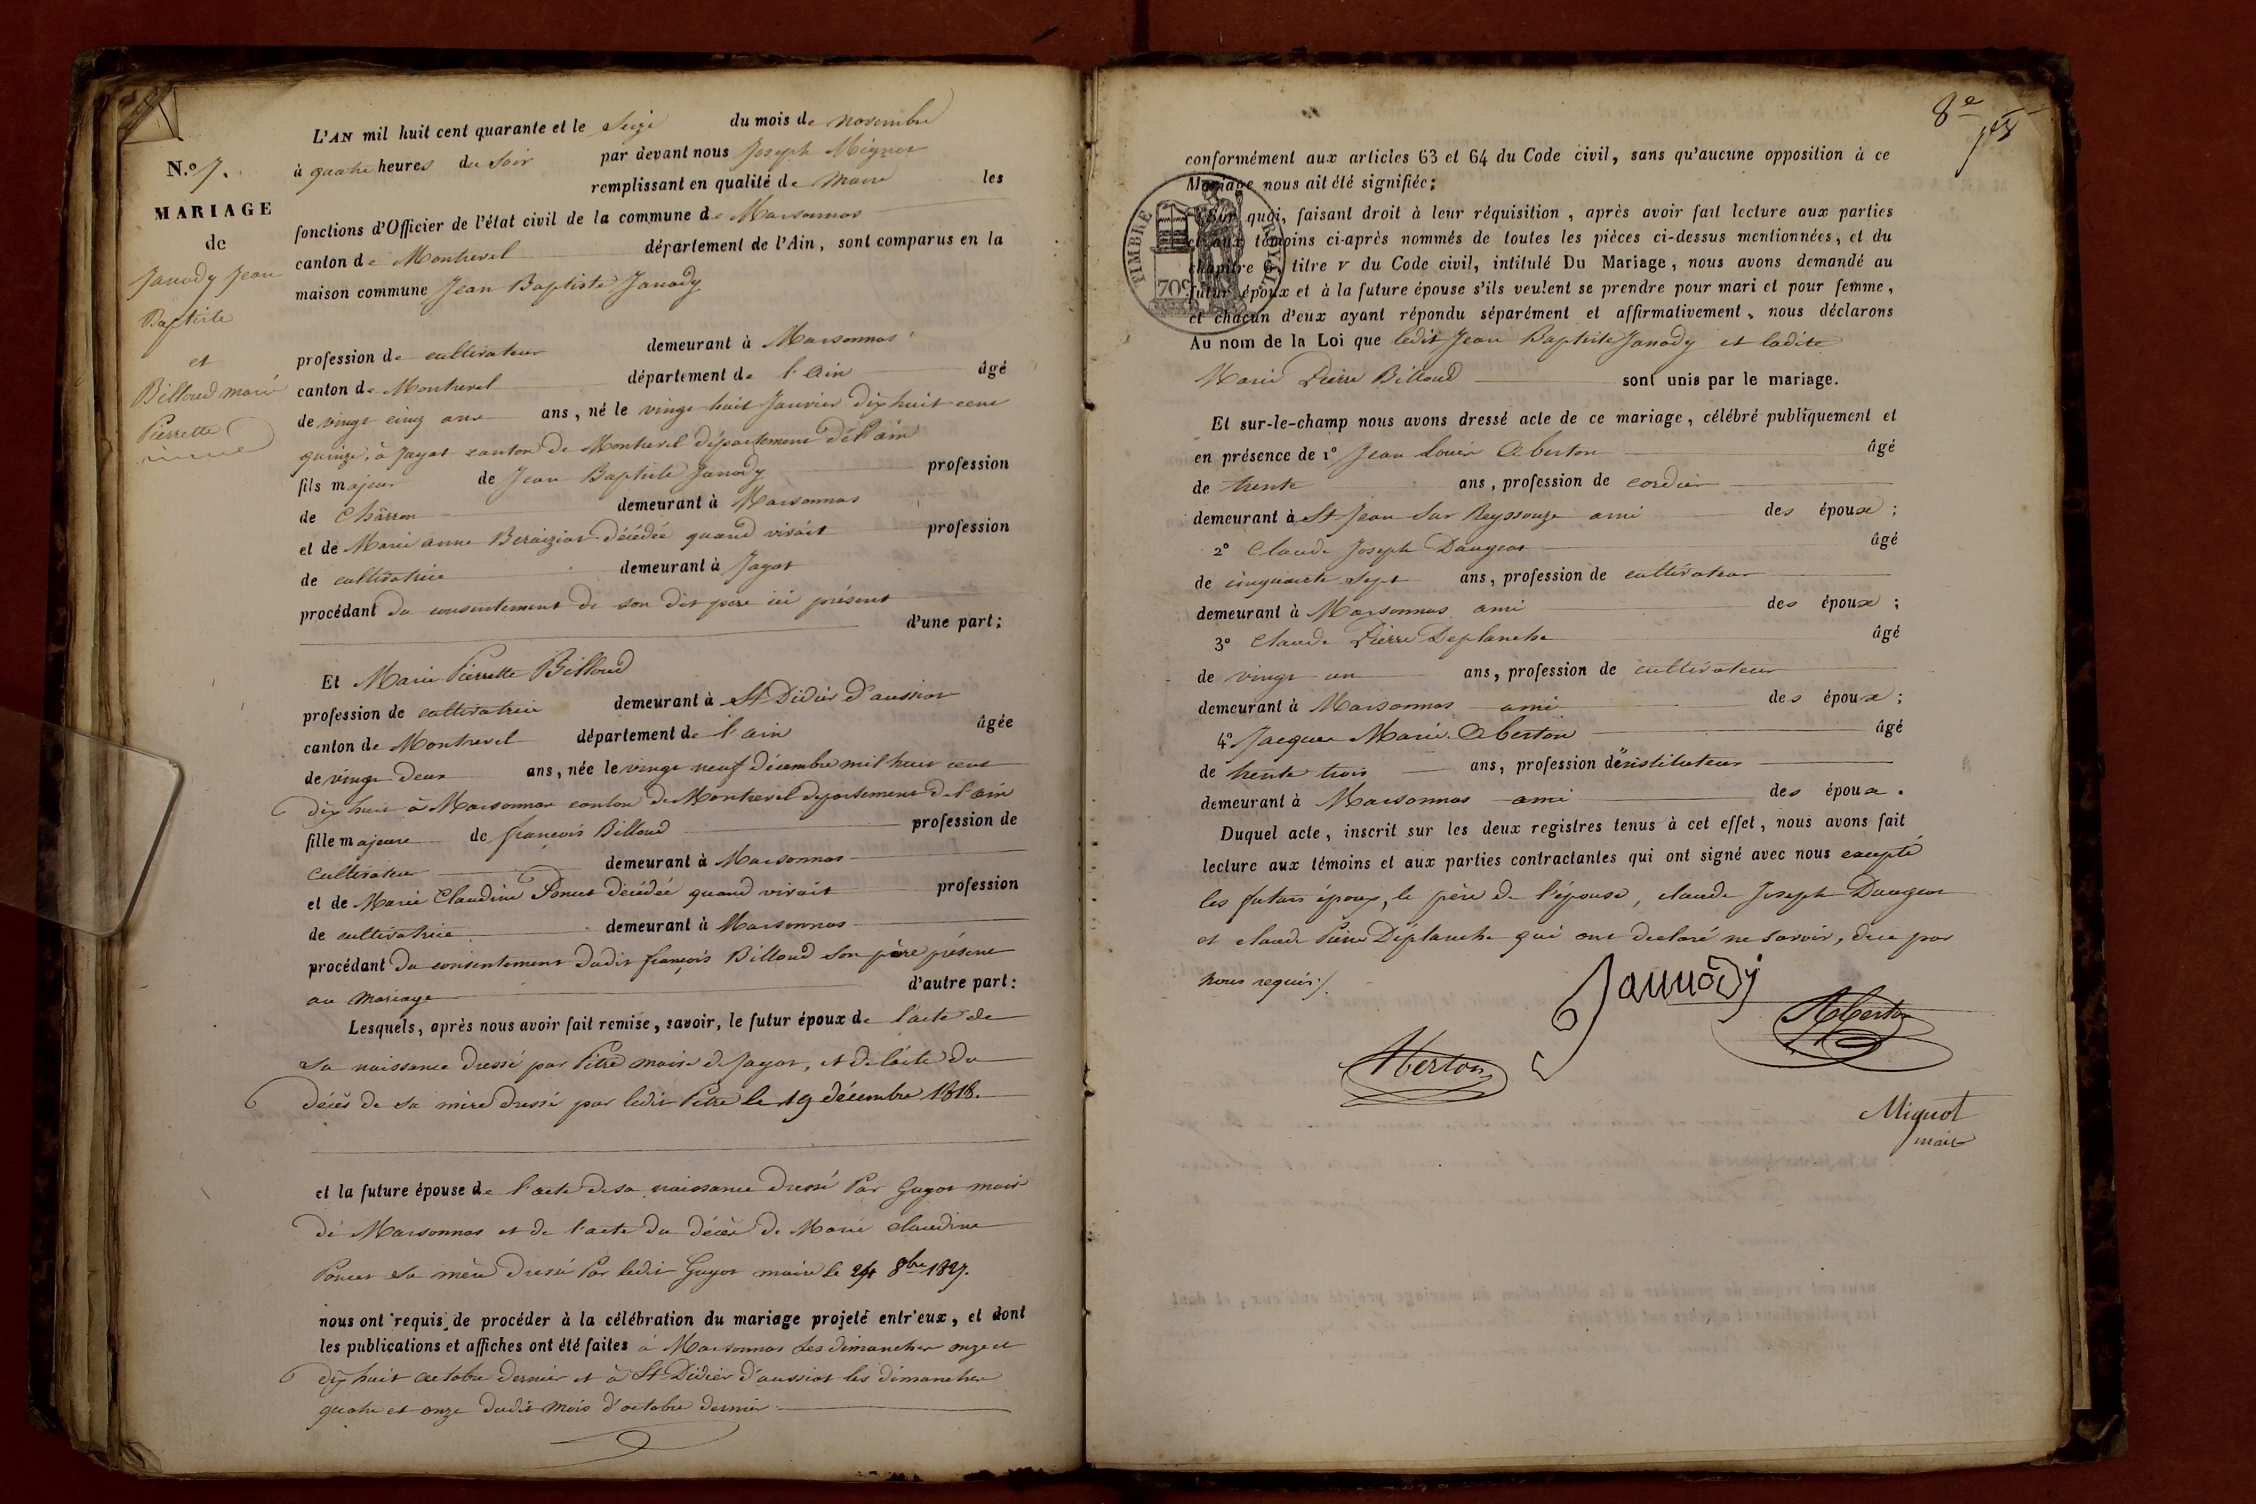 N.º 7.
MARIAGE
de
Janody Jean
Baptiste
et
Billoud marie
Pierrette
L'AN mil huit cent quarante et le Seize du mois de novembre
à quatre heures du Soir par devant nous Joseph Mignot
remplissant en qualité de Maire les
fonctions d'Officier de l'état civil de la commune de Marsonnas
canton de Montrevel département de l'Ain, sont comparus en la
maison commune Jean Baptiste Janody
profession de cultivateur demeurant à Marsonnas
canton de Montrevel département de l'Ain âgé
de vingt cinq ans ans, né le vingt huit Janvier dix huit cent
quinze, à Jayat canton de Montrevel département de l'ain
fils majeur de Jean Baptiste Janody profession
de Charron demeurant à Marsonnas
et de Marie anne Beraiziat décédée quand vivait profession
de cultivatrice demeurant à Jayat
procédant du consentement de son dit pere ici présent
d'une part;
Et Marie Pierrette Billoud
profession de cultivatrice demeurant à St Didier d'aussiat
canton de Montrevel département de l'ain âgée
de vingt deux ans, née le vingt neuf décembre mil huit cent
dix huit à Marsonnas canton de Montrevel département de l'ain
fille majeure de françois Billoud profession de
cultivateur demeurant à Marsonnas
et de Marie Claudine Poncet décédée quand vivait profession
de cultivatrice demeurant à Marsonnas
procédant du consentement dudit françois Billoud son père présent
au mariage d'autre part:
Lesquels, après nous avoir fait remise, savoir, le futur époux de l'acte de
sa naissance dressé par Pitre maire de Jayat, et de l'acte du
décès de sa mère dressé par ledit Pitre le 19 décembre 1818.
et la future épouse de l'acte de sa naissance dressé Par Guyot maire
de Marsonnas et de l'acte du décès de Marie claudine
Poncet sa mère dressé Par ledit Guyot maire le 24 8bre 1827.
nous ont requis de procéder à la célébration du mariage projeté entr'eux, et dont
les publications et affiches ont été faites à Marsonnas les dimanches onze et
dix huit octobre dernier et à St Didier d'aussiat les dimanches
quatre et onze dudit mois d'octobre dernier
8e
conformément aux articles 63 et 64 du Code civil, sans qu'aucune opposition à ce
Mariage nous ait été signifiée;
TIMBRE ROYAL
70c
Sur quoi, faisant droit à leur réquisition, après avoir fait lecture aux parties
et aux témoins ci-après nommés de toutes les pièces ci-dessus mentionnées, et du
chapitre 6, titre V du Code civil, intitulé Du Mariage, nous avons demandé au
futur époux et à la future épouse s'ils veulent se prendre pour mari et pour femme,
et chacun d'eux ayant répondu séparément et affirmativement, nous déclarons
Au nom de la Loi que ledit Jean Baptiste Janody et ladite
Marie Pierre Billoud sont unis par le mariage.
Et sur-le-champ nous avons dressé acte de ce mariage, célébré publiquement et
en présence de 1º Jean Louis Aberton âgé
de trente ans, profession de cordier
demeurant à St Jean Sur Reyssouze ami des époux;
2º Claude Joseph Daugeat âgé
de cinquante sept ans, profession de cultivateur
demeurant à Marsonnas ami des époux;
3º Claude Pierre Deplanche âgé
de vingt un ans, profession de cultivateur
demeurant à Marsonnas ami des époux;
4º Jacques Marie Aberton âgé
de trente trois ans, profession d'instituteur
demeurant à Marsonnas ami des époux.
Duquel acte, inscrit sur les deux registres tenus à cet effet, nous avons fait
lecture aux témoins et aux parties contractantes qui ont signé avec nous excepté
les futurs époux, le père de l'épouse, claude Joseph Daugeat
et claude Pierre Déplanche qui ont declaré ne savoir, de ce par
nous requis./.
Jannody
Aberton
Aberton
Mignot
maire